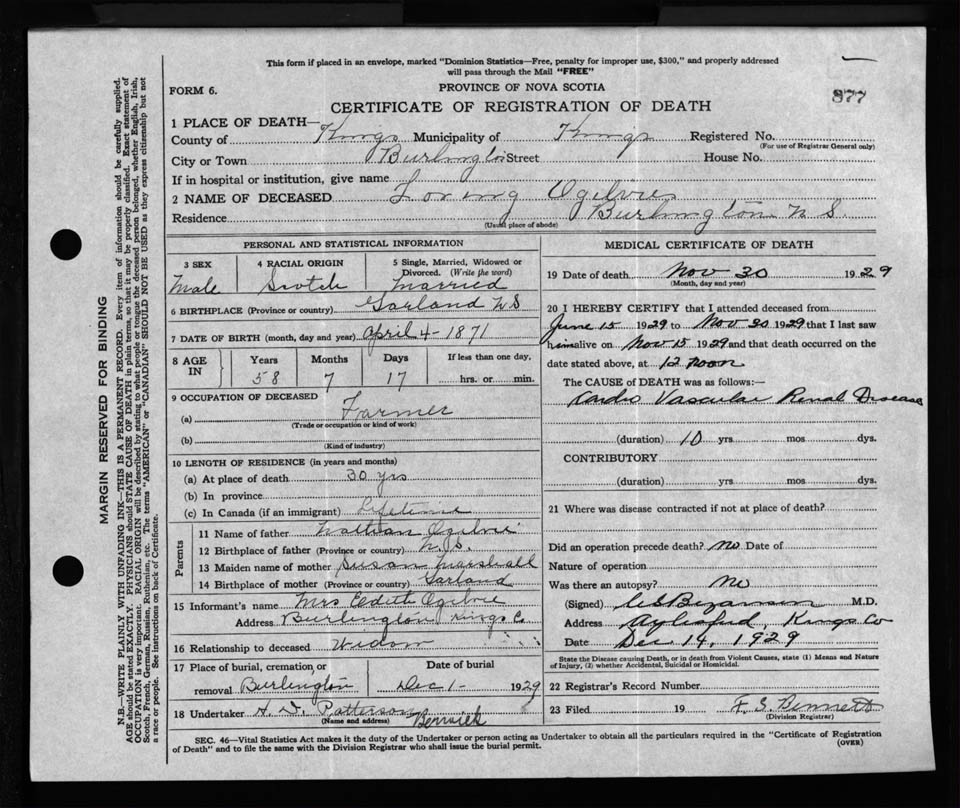 This form if placed in an envelope, marked "Dominion Statistics—Free, penalty for improper use, $300," and properly addressed
will pass through the Mail "FREE"
FORM 6.
PROVINCE OF NOVA SCOTIA
877
CERTIFICATE OF REGISTRATION OF DEATH
1 PLACE OF DEATH—
County of Kings Municipality of Kings Registered No.
(For use of Registrar General only)
City or Town Burlington Street House No.
If in hospital or institution, give name
2 NAME OF DECEASED Loring Ogilvie
Residence Burlington N S.
(Usual place of abode)
PERSONAL AND STATISTICAL INFORMATION
3 SEX 4 RACIAL ORIGIN 5 Single, Married, Widowed or
Divorced. (Write the word)
Male Scotch Married
6 BIRTHPLACE (Province or country) Garland N S
7 DATE OF BIRTH (month, day and year) April 4 - 1871
8 AGE IN Years Months Days If less than one day,
58 7 17 hrs. or min.
9 OCCUPATION OF DECEASED
(a) Farmer
(Trade or occupation or kind of work)
(b)
(Kind of industry)
10 LENGTH OF RESIDENCE (in years and months)
(a) At place of death 30 yrs
(b) In province
(c) In Canada (if an immigrant) Lifetime
Parents
11 Name of father Nathan Ogilvie
12 Birthplace of father (Province or country) N. S.
13 Maiden name of mother Susan Marshall
14 Birthplace of mother (Province or country) Garland
15 Informant's name Mrs Eedith Ogilvie
Address Burlington Kings C.
16 Relationship to deceased Widow
17 Place of burial, cremation, or Date of burial
removal Burlington Dec 1 - 1929
18 Undertaker H. D. Patterson Berwick
(Name and address)
MEDICAL CERTIFICATE OF DEATH
19 Date of death Nov 30 1929
(Month, day and year)
20 I HEREBY CERTIFY that I attended deceased from
June 15 1929 to Nov 30 1929 that I last saw
him alive on Nov 15 1929 and that death occurred on the
date stated above, at 12 noon
The CAUSE OF DEATH was as follows:—
Cardio Vascular Renal Disease
(duration) 10 yrs. mos. dys.
CONTRIBUTORY
(duration) yrs. mos. dys.
21 Where was disease contracted if not at place of death?
Did an operation precede death? no Date of
Nature of operation
Was there an autopsy? no
(Signed) M.D.
Address Aylesford, Kings Co
Date Dec 14, 1929
State the Disease causing Death, or in death from Violent Causes, state (1) Means and Nature
of Injury, (2) whether Accidental, Suicidal or Homicidal.
22 Registrar's Record Number
23 Filed 19 F. S. Bennett
(Division Registrar)
SEC. 46—Vital Statistics Act makes it the duty of the Undertaker or person acting as Undertaker to obtain all the particulars required in the "Certificate of Registration
of Death" and to file the same with the Division Registrar who shall issue the burial permit.
(OVER)
MARGIN RESERVED FOR BINDING
N.B.—WRITE PLAINLY WITH UNFADING INK—THIS IS A PERMANENT RECORD. Every item of information should be carefully supplied.
AGE should be stated EXACTLY. PHYSICIANS should STATE CAUSE OF DEATH in plain terms, so that it may be properly classified. Exact statement of
OCCUPATION is very important. RACIAL ORIGIN will be described by stating to what people or tongue the deceased person belonged, whether English, Irish,
Scotch, French, German, Russian, Ruthenian, etc. The terms "AMERICAN" or "CANADIAN" SHOULD NOT BE USED as they express citizenship but not
a race or people. See instructions on back of Certificate.